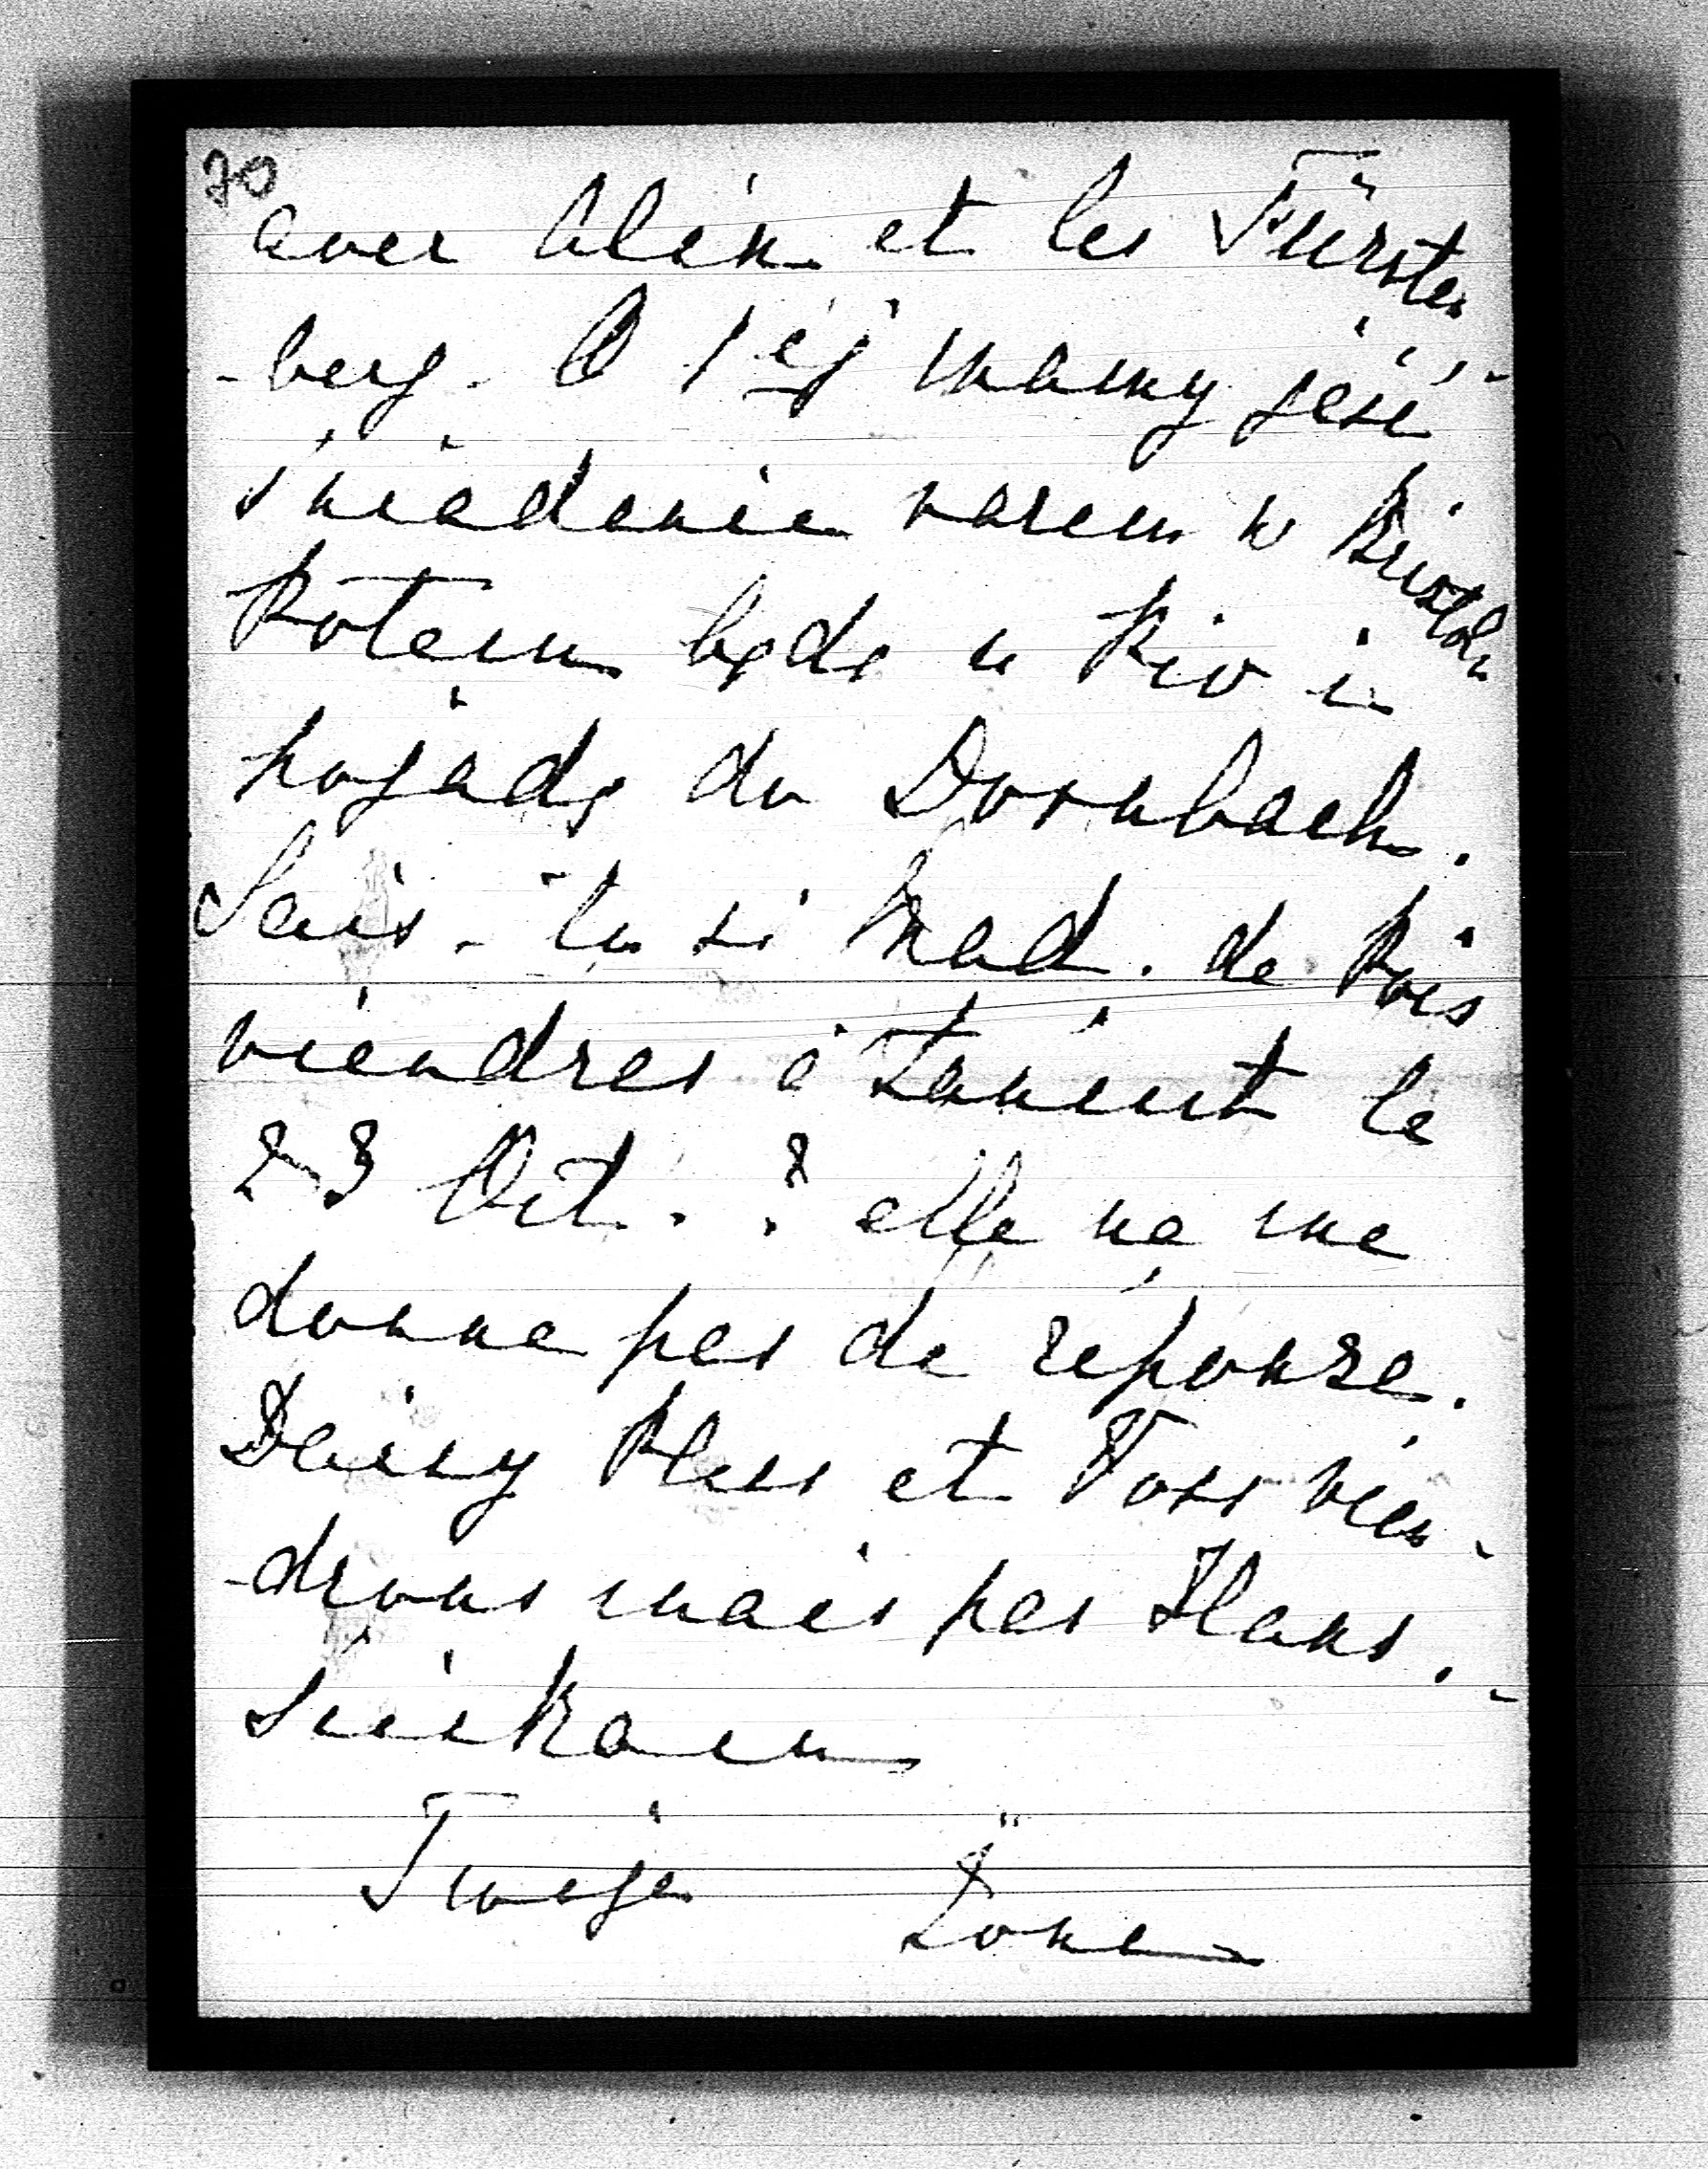 70
avec Alex. et les Fürsten
-berg. O 1ej mamy jeść
śniadanie razem w Bristolu
Potem będę u Rio i
pojadę do Dornbach.
Sais-tu si Mad. de Pois
viendras à Łańcut le
23 Oct. ? elle ne me
donne pas de réponse.
Daisy Pless et Foss vien-
-drons mais pas Hans.-
Ściskam
Twoja Żona